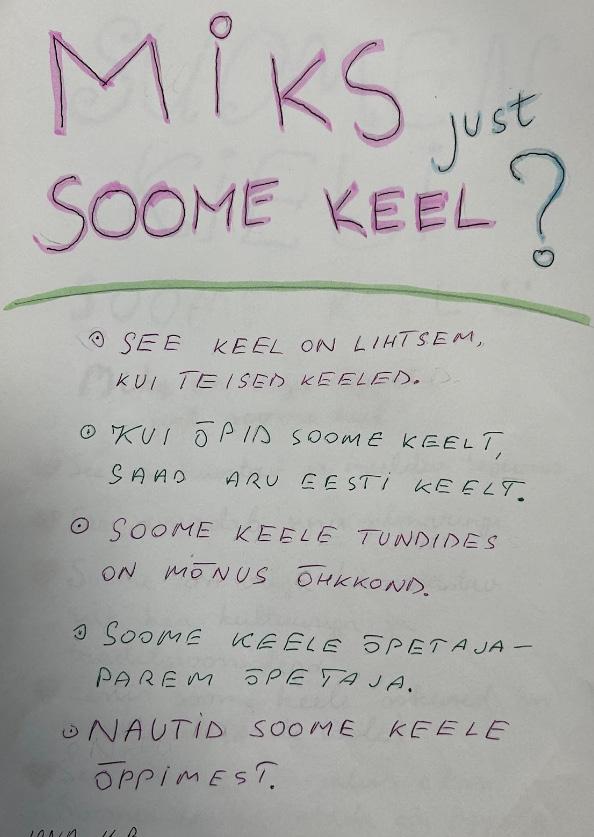 MiKS just
SOOME KEEL?
SEE KEEL ON LIHTSEM,
KUI TEISED KEELED.
KUI ŌPID SOOME KEELT,
SAAD ARU EESTi KEELT.
SOOME KEELE TUNDIDES
ON MŌNUS ŌHKKOND.
SOOME KEELE ŌPETAJA-
PAREM ŌPETAJA.
NAUTiD SOOME KEELE
ŌPPIMEST.